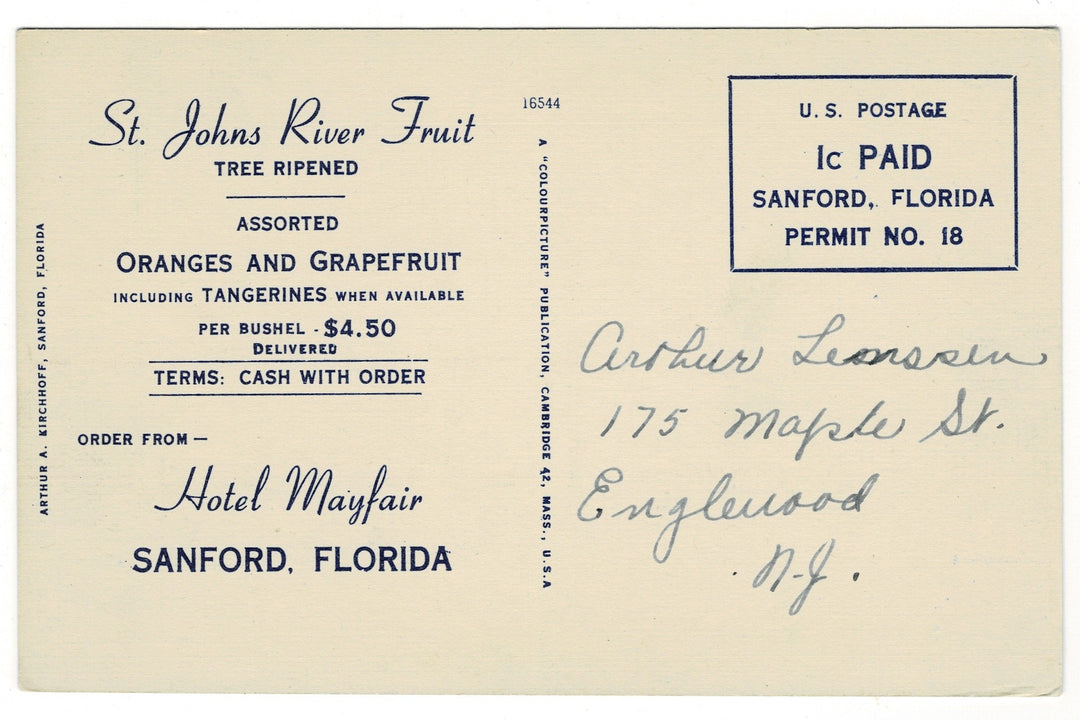 St. Johns River Fruit
TREE RIPENED
ASSORTED
ORANGES AND GRAPEFRUIT
INCLUDING TANGERINES WHEN AVAILABLE
PER BUSHEL - $4.50
DELIVERED
TERMS: CASH WITH ORDER
ORDER FROM —
Hotel Mayfair
SANFORD, FLORIDA
ARTHUR A. KIRCHHOFF, SANFORD, FLORIDA
16544
A "COLOURPICTURE" PUBLICATION, CAMBRIDGE 42, MASS., U.S.A
U. S. POSTAGE
1c PAID
SANFORD, FLORIDA
PERMIT NO. 18
Arthur
175 Maple St.
Englewood
N.J.